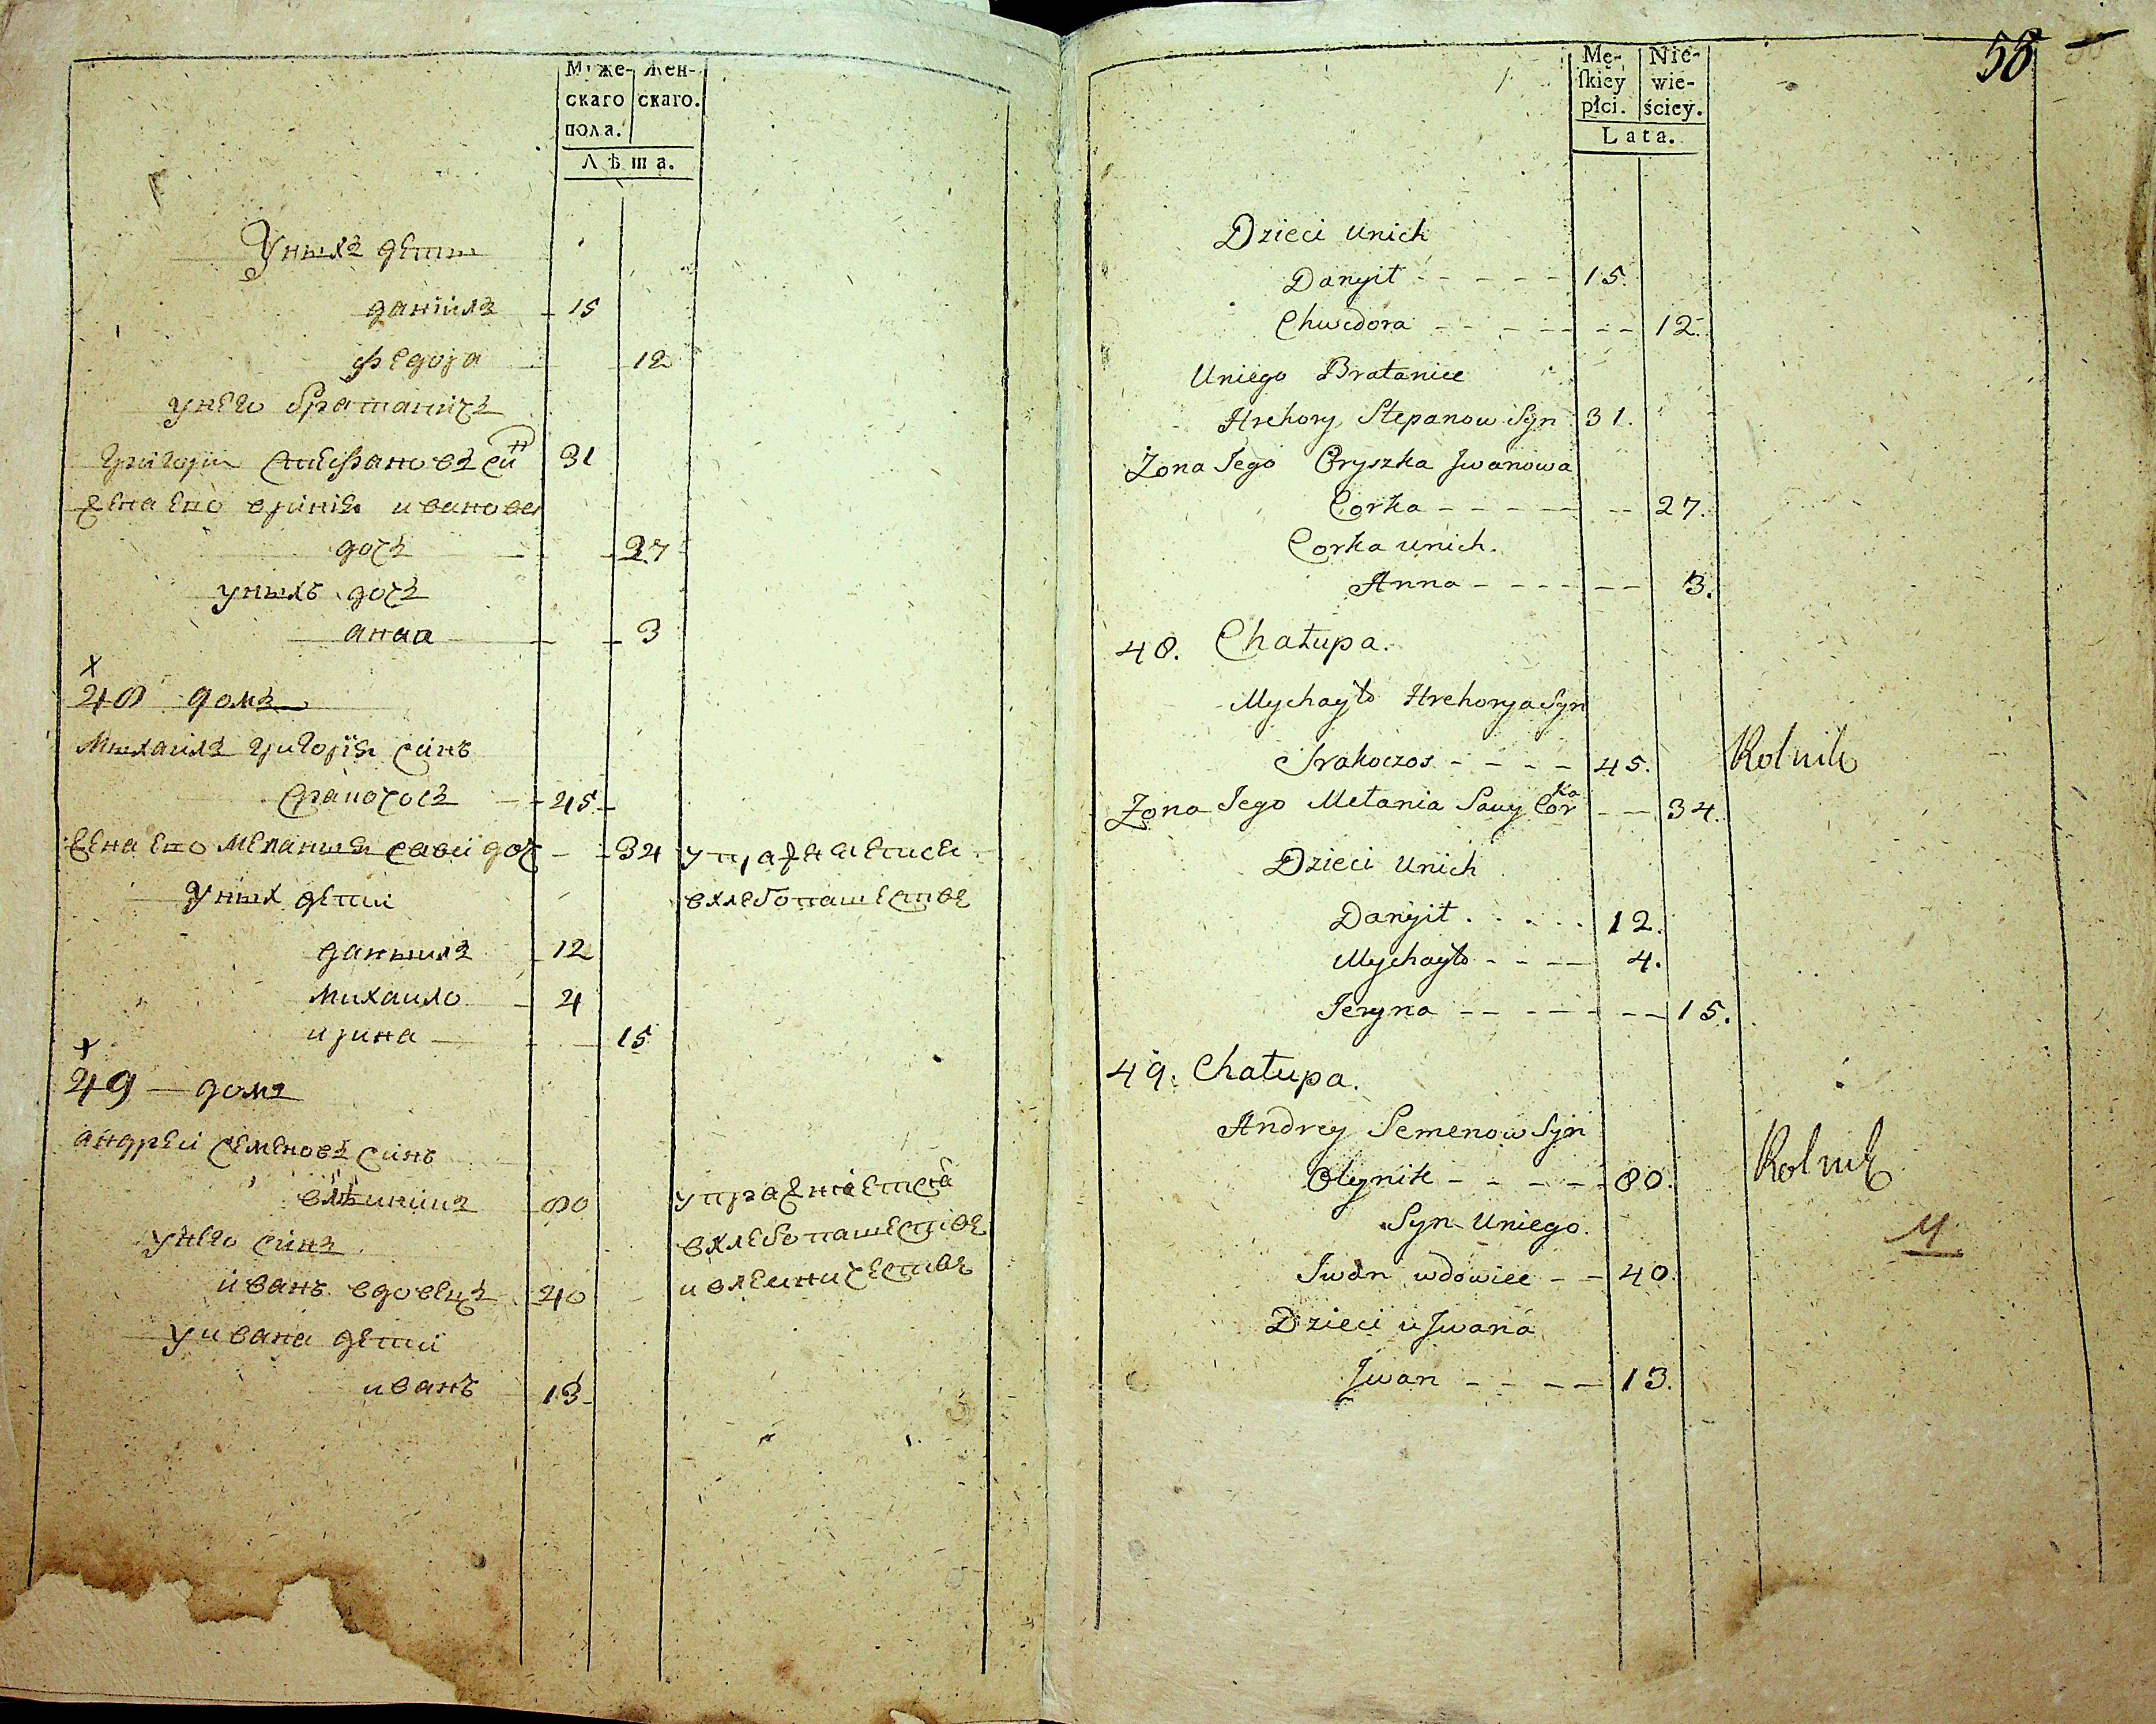 Муже-
скаго
пола.
Жен-
скаго.
Лѣта.
Уныхъ дети
даніилъ 15
Федора 12
унего братаничъ
Григори Стефановъ си 31
жена его
дочъ 27
уныхъ дочъ
анна 3
х
48 домъ
Михаилъ григорія синъ
45
жена его мелания сави доч 34
упражняется
Уных дети
вхлебопашестве
даныилъ 12
михаило 4
ирина 15
х
49 домъ
андреи семеновъ синъ
80
упражняется
унего синъ
вхлебопашестве
иванъ вдовецъ 40
уивана дети
иванъ 13
58
Mę-
ſkiey
płci.
Nie-
wie-
ściey.
Lata.
Dzieci unich
Danyił 15.
Chwedora 12.
Uniego Bratanice
Hrehory Stepanow Syn 31.
Zona Jego Oryszka Jwanowa
Corka 27.
Corka unich.
Anna 3.
48. Chałupa.
Mychayło Hrehorya Syn
45. Rolnik
Zona Jego Mełania Sawy Corka 34.
Dzieci Unich
Danyił 12.
Mychayło 4.
Jeryna 15.
49. Chałupa.
Andrey Semenow Syn
Olynik 80. Rolnik
Syn Uniego.
Jwan wdowiec 40.
Dzieci u Jwana
Jwan 13.